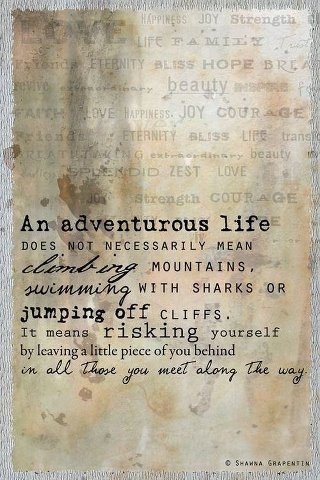 HAPPINESS JOY Strength
LOVE
LIFE FAMILY
Friends ETERNITY BLISS HOPE
beauty INSPIRE
extraordinary
FAITH LOVE HAPPINESS. JOY COURAGE
Friends ETERNITY BLISS LIFE
BREATHTAKING extraordinary beauty
SPLENDID ZEST LOVE
JOY Strength COURAGE
An adventurous life
DOES NOT NECESSARILY MEAN
climbing MOUNTAINS,
swimming WITH SHARKS OR
jumping off CLIFFS.
It means risking yourself
by leaving a little piece of you behind
in all those you meet along the way.
© SHAWNA GRAPENTIN